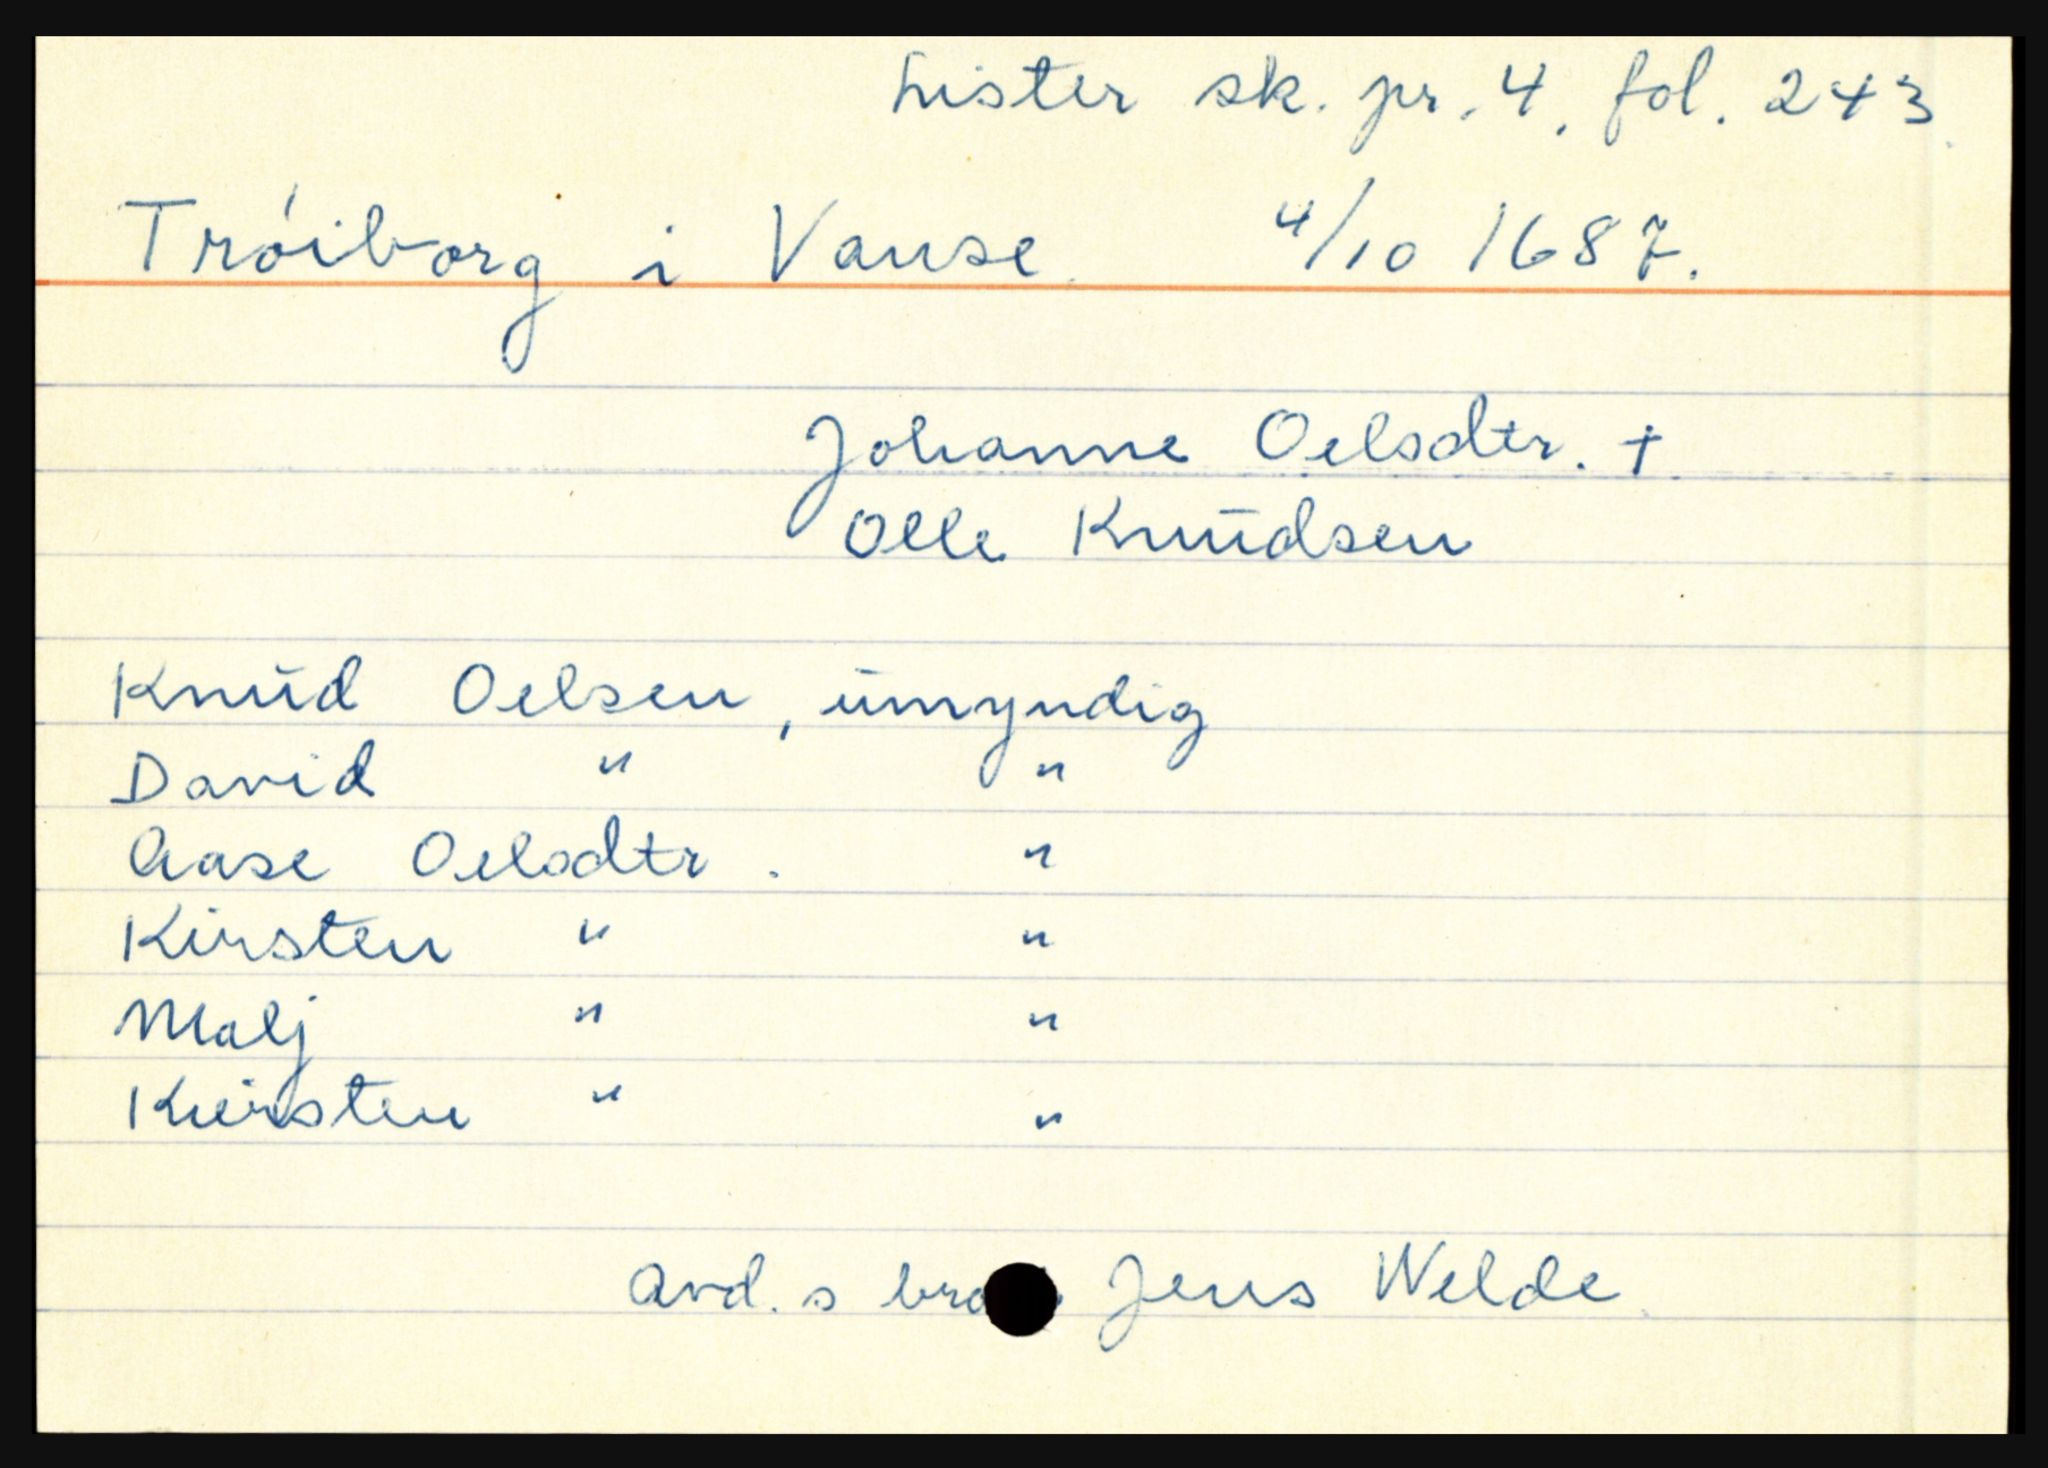 Lister sk. pr. 4, fol. 243.
Tróiborg i Vanse 4/10 1687.
Johanne Oelsdtr. †
Olle Knūdsen
Knūd Oelsen, ūmyndig
David " "
Aase Oelsdtr. "
Kirsten " "
Malj " "
Kiersten " "
Avd. s Jens Welde